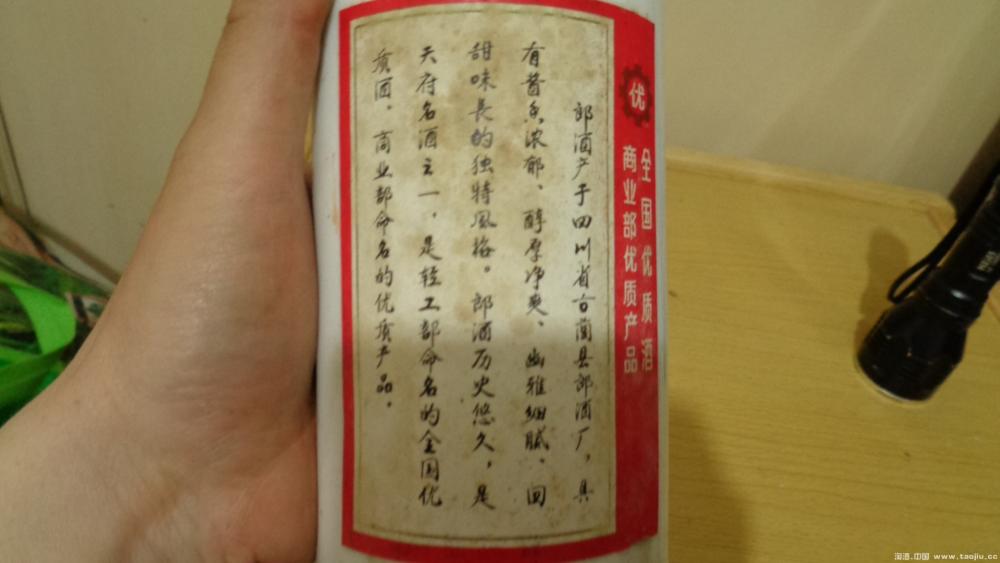 优
全国优质酒
商业部优质产品
郎酒产于四川省古蔺县郎酒厂，具
有酱香浓郁、醇厚净爽、幽雅细腻、回
甜味長的独特風格。郎酒历史悠久，是
天府名酒之一，是轻工部命名的全国优
质酒，商业部命名的优质产品。
淘酒.中国 www.taojiu.cc